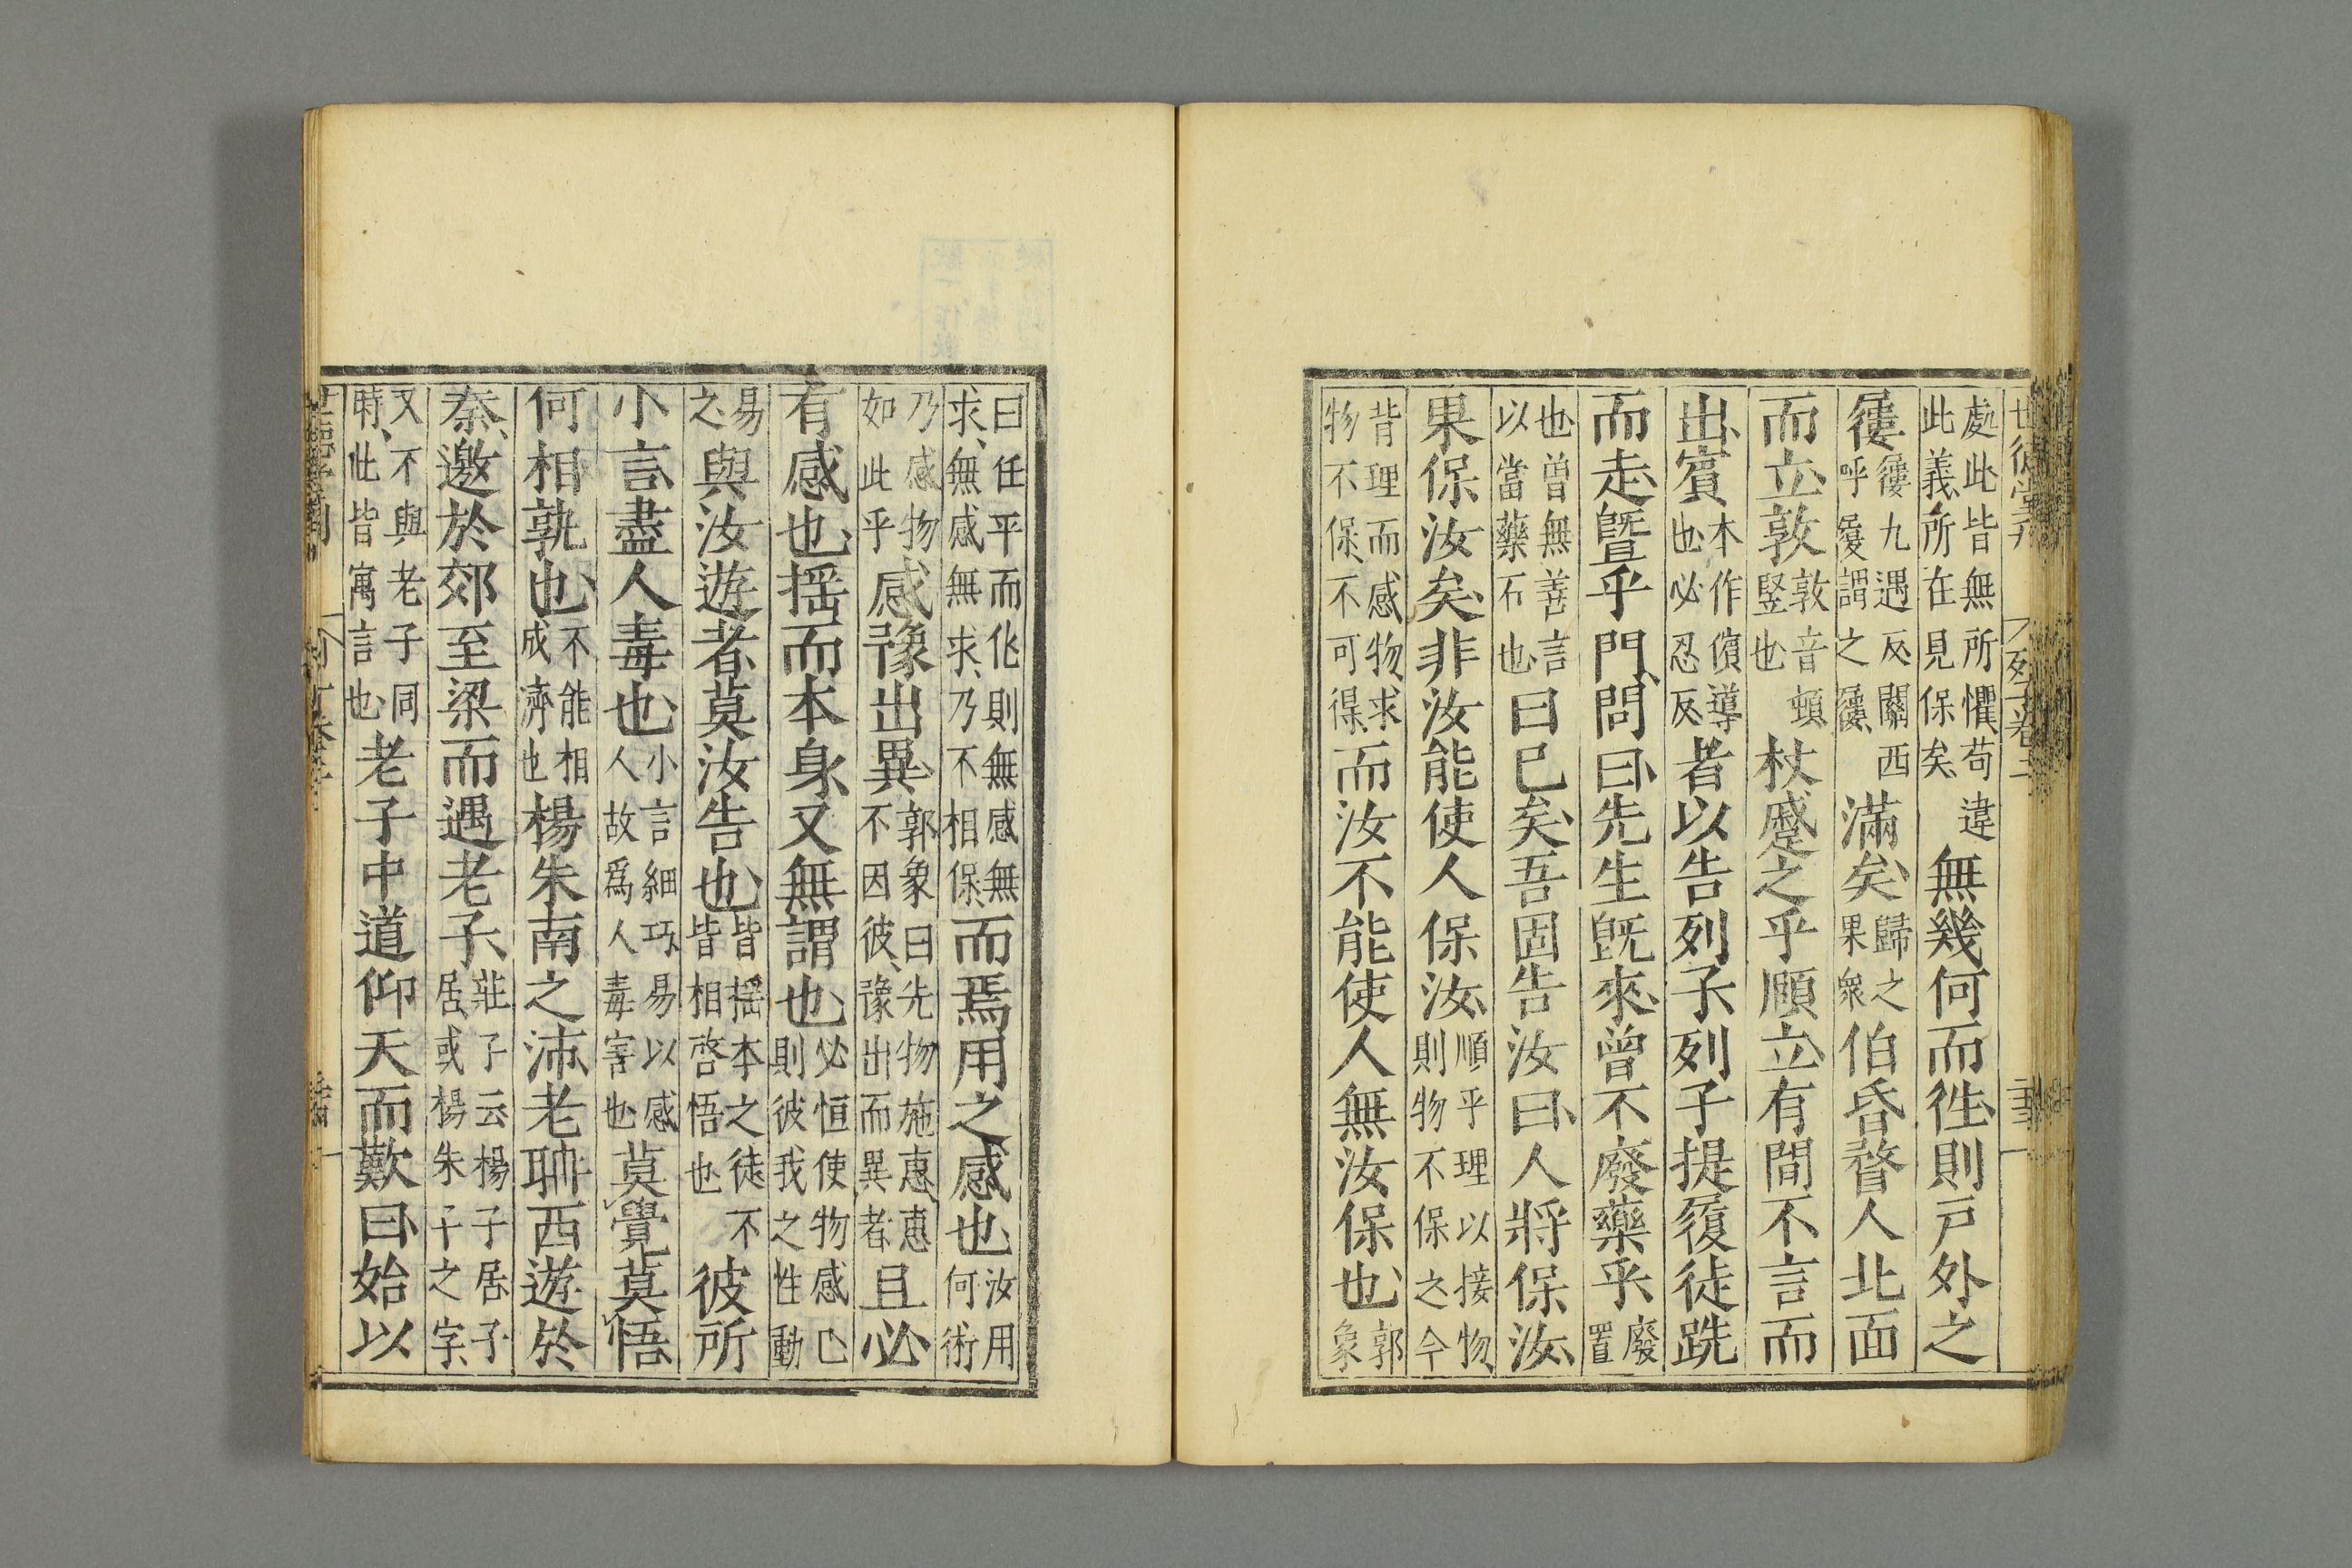 處此皆無所懼苟違
此義所在見保矣
無幾何而徃則戸外之
屨屨九遇反關西
呼履謂之屨
滿矣歸之
果衆
伯昏瞀人北面
而立敦敦音頓
竪也
杖蹙之乎頤立有間不言而
出賓本作儐導
也必忍反
者以告列子列子提履徒跣
而走曁乎門問曰先生旣來曾不廢藥乎廢
置
也曾無善言
以當藥石也
曰已矣吾固告汝曰人將保汝
果保汝矣非汝能使人保汝順乎理以接物
則物不保之今
背理而感物求
物不保不可得
而汝不能使人無汝保也郭
象
曰任平而化則無感無
求無感無求乃不相保
而焉用之感也汝用
何術
乃感物
如此乎
感豫出異郭象曰先物施惠惠
不因彼豫出而異者
且必
有感也揺而本身又無謂也必恒使物感己
則彼我之性動
易
之
與汝遊者莫汝告也皆揺本之徒不
皆相啓悟也
彼所
小言盡人毒也小言細巧易以感
人故爲人毒害也
莫覺莫悟
何相孰也不能相
成濟也
楊朱南之沛老聃西遊於
秦邀於郊至梁而遇老子莊子云楊子居子
居或楊朱之字
又不與老子同
時此皆寓言也
老子中道仰天而歎曰始以